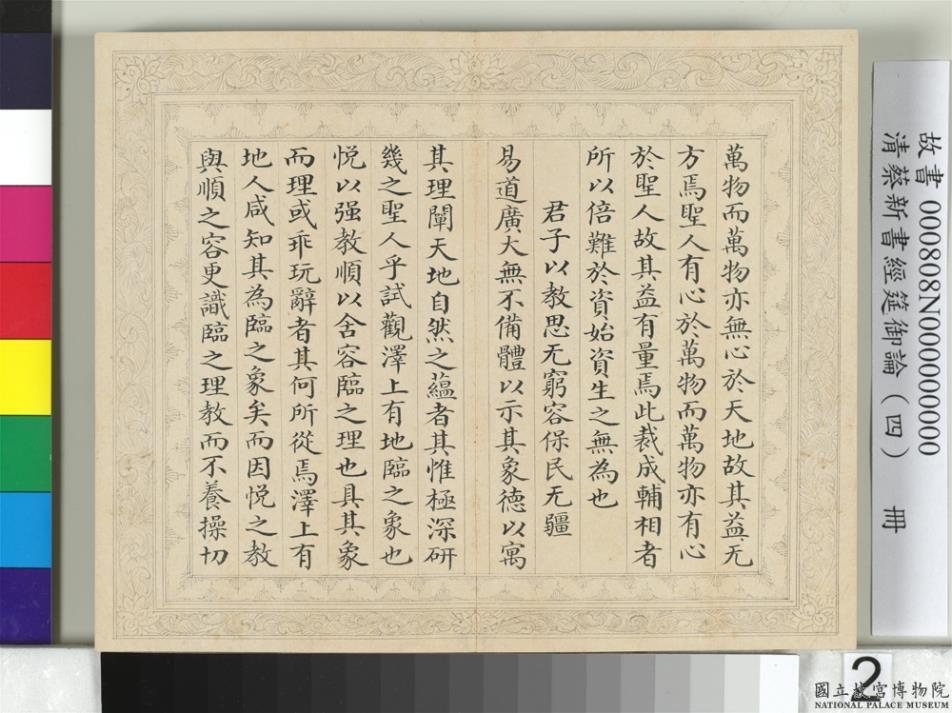 萬物而萬物亦無心於天地故其益无
方焉聖人有心於萬物而萬物亦有心
於聖人故其益有量焉此裁成輔相者
所以倍難於資始資生之無為也
君子以教思无窮容保民无疆
易道廣大無不備體以示其象德以寓
其理闡天地自然之蘊者其惟極深研
幾之聖人乎試觀澤上有地臨之象也
悅以强教順以含容臨之理也具其象
而理或乖玩辭者其何所從焉澤上有
地人咸知其為臨之象矣而因悅之教
與順之容更識臨之理教而不養操切
故書 000808N000000000
清蔡新書經筵御論（四） 冊
2
國立故宮博物院
NATIONAL PALACE MUSEUM